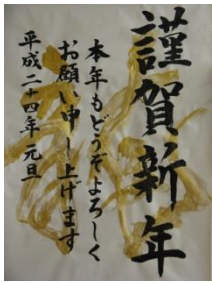 謹賀新年
本年もどうぞよろしく
お願い申し上げます
平成二十四年 元旦